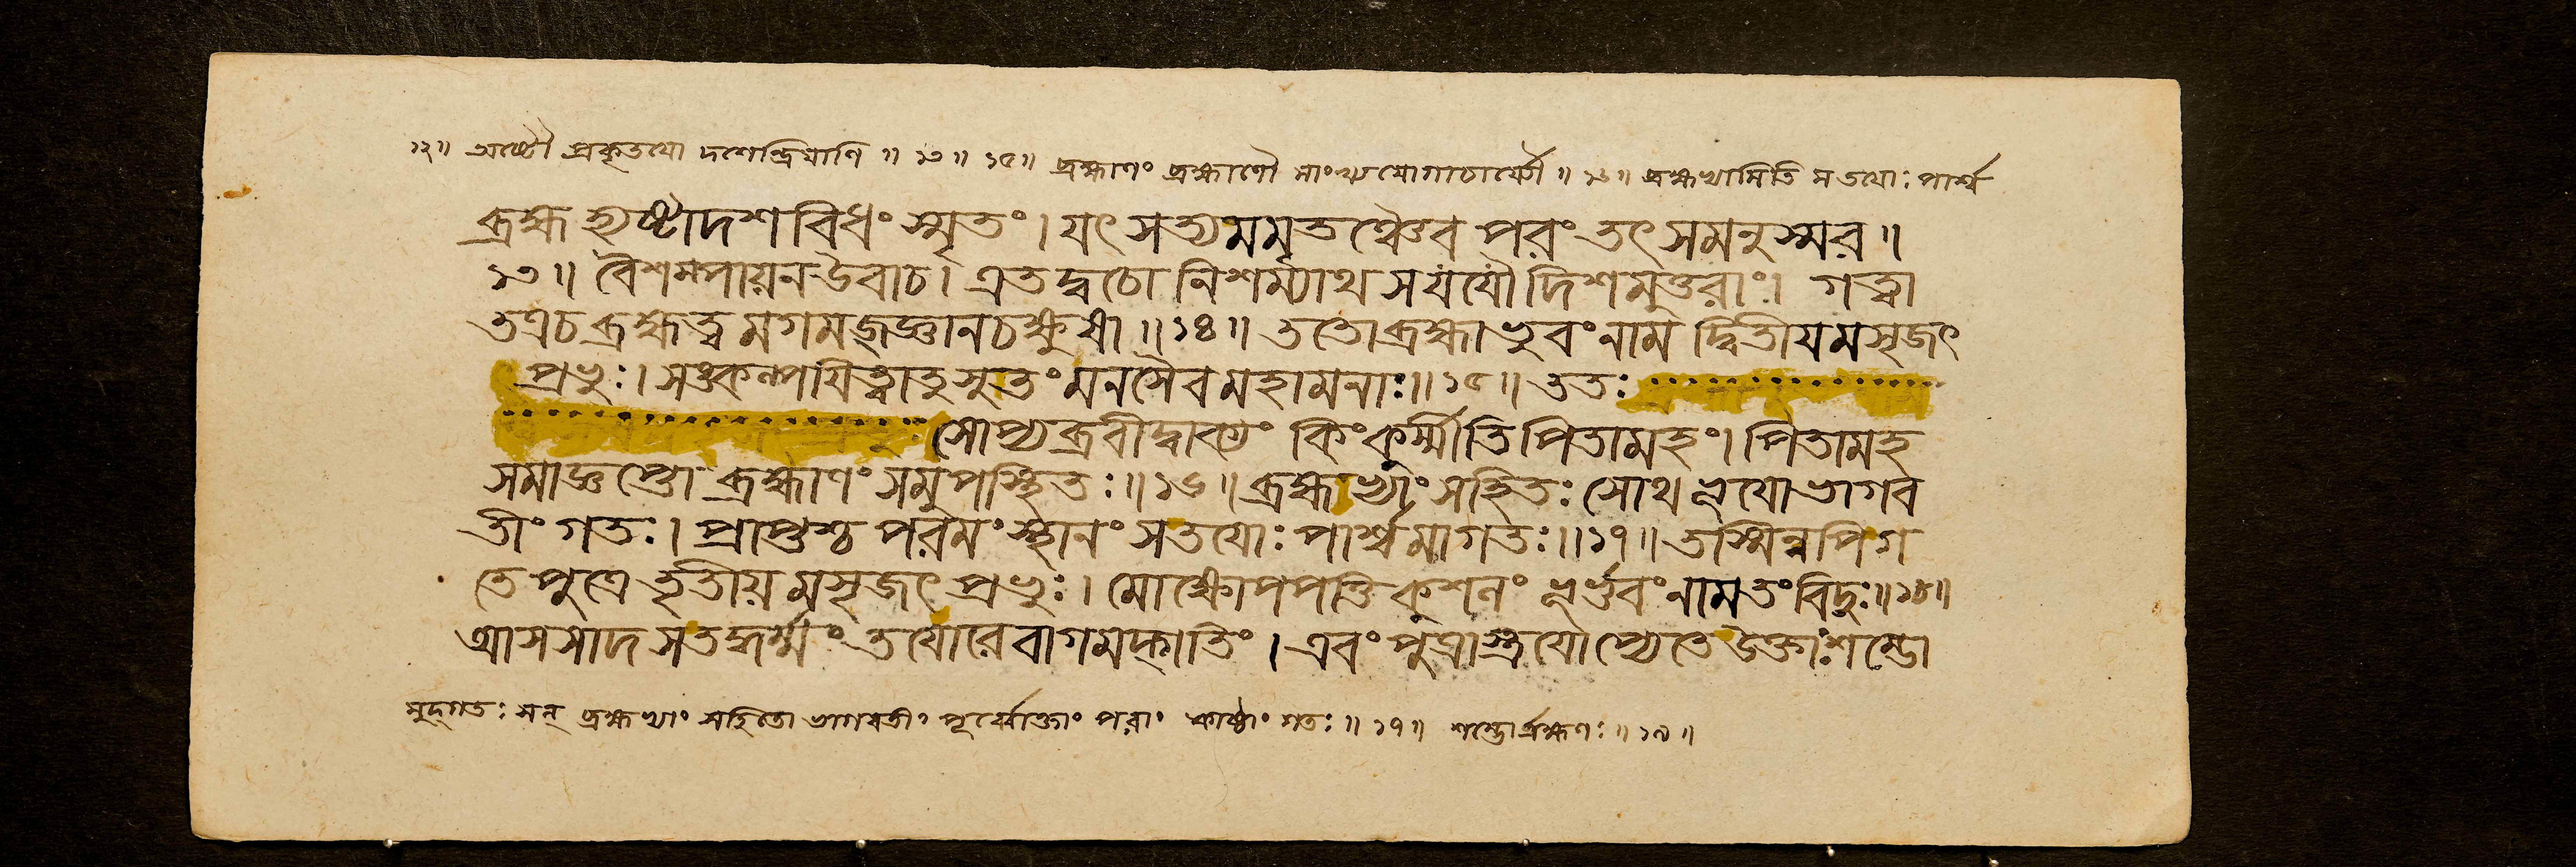 ১২॥ অষ্টৌ প্রকৃতযো দশেন্দ্রিযাণি ॥ ১৩ ॥ ১৫॥ ব্রহ্মাণং ব্রহ্মাণৌ সাংখ্যযোগাচার্য্যৌ ॥ ১৬॥ ব্রহ্মখামিতি স তযোঃ পার্শ্ব
ব্রহ্ম হ্যষ্টাদশ বিধং স্মৃতং। যৎ সত্যমমৃতঞ্চৈব পরং তৎ সমনুস্মর॥
১৩॥ বৈশম্পায়ন উবাচ। এতদ্বচো নিশম্যাথ সযযৌ দিশমুত্তরাং। গত্বা
তত্রচ ব্রহ্মত্বমগমজ্জ্ঞানচক্ষুষা॥১৪॥ ততোব্রহ্মাভুবংনাম দ্বিতীয়মসৃজৎ
প্রভুঃ। সঙ্কল্পযিত্বাতু সুতং মনসৈব মহামনাঃ॥১৫॥ ততঃ
সোপ্যব্রবীদ্বাক্যং কিংকুর্ম্মীতি পিতামহং। পিতামহ
সমাজ্ঞপ্তো ব্রহ্মাণং সমুপস্থিতঃ॥১৬॥ ব্রহ্মখাং সহিতঃ সোথ ভূযো ভাগব
তীং গতঃ। প্রাপ্তশ্চ পরমং স্থানং স তযোঃ পার্শ্বমাগতঃ॥১৭॥ তস্মিন্নপি গ
তে পুত্রে তৃতীয়মসৃজৎ প্রভুঃ। মোক্ষোপপত্তি কুশলং ভূর্ভুবং নামতং বিদুঃ॥১৮॥
আসসাদ সতদ্ধর্ম্মং তযোরেবাগমদ্গতিং। এবং পুত্রাস্ত্রযোপ্যেতে উক্তাঃ শম্ভো
মুদ্গতঃ সন্ ব্রহ্মখাং সহিতো ভাগবতীং পূর্ব্বোক্তাং পরাং কাষ্ঠাং গতঃ॥ ১৭॥ শম্ভোর্ব্রহ্মণঃ॥ ১৯॥